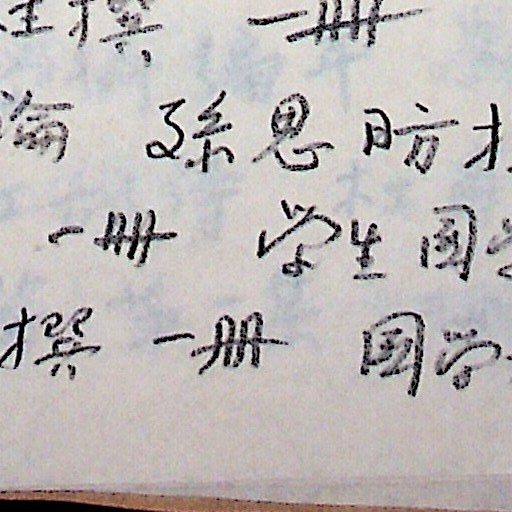 撰 一冊
孫思昉
一冊 学生国
撰 一册 国学